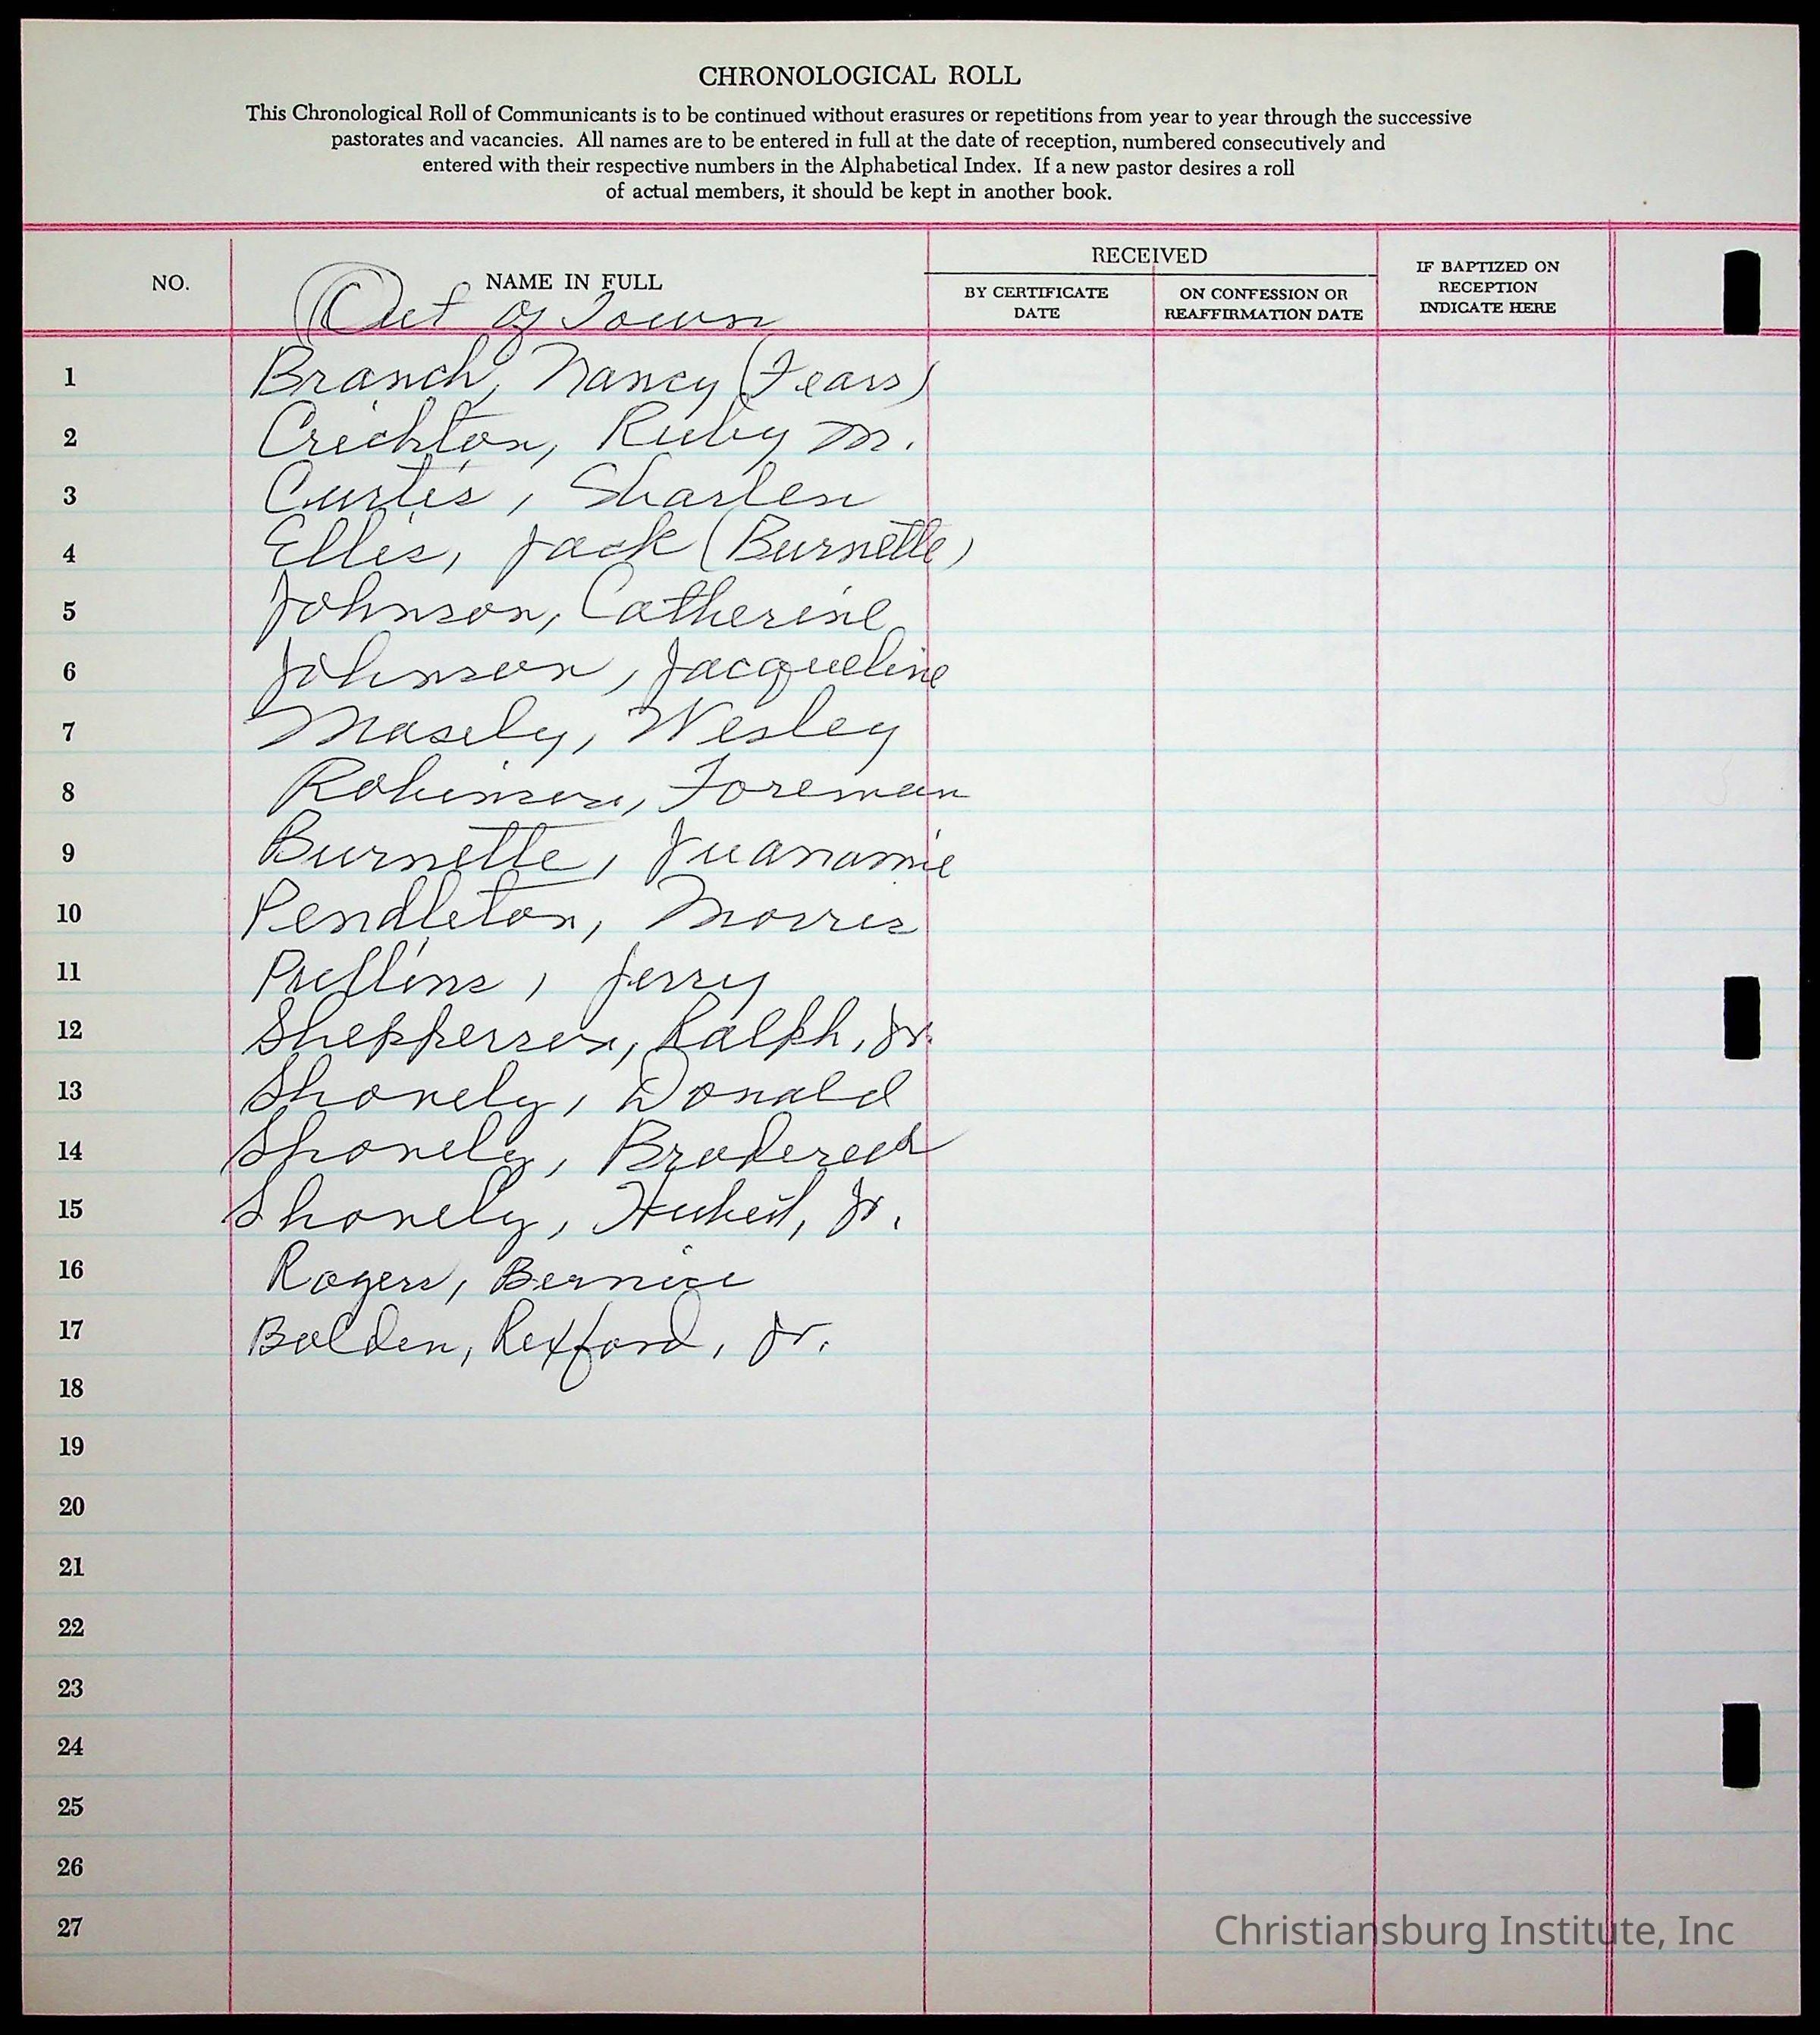 CHRONOLOGICAL ROLL
This Chronological Roll of Communicants is to be continued without erasures or repetitions from year to year through the successive
pastorates and vacancies. All names are to be entered in full at the date of reception, numbered consecutively and
entered with their respective numbers in the Alphabetical Index. If a new pastor desires a roll
of actual members, it should be kept in another book.
NO.
NAME IN FULL
RECEIVED
BY CERTIFICATE
DATE
ON CONFESSION OR
REAFFIRMATION DATE
IF BAPTIZED ON
RECEPTION
INDICATE HERE
Out of Town
1 Branch, Nancy (Fears)
2 Crichton, Ruby M.
3 Curtis, Sharlen
4 Ellis, Jack (Burnette)
5 Johnson, Catherine
6 Johnson, Jacqueline
7 Masely, Wesley
8 Robinson, Foreman
9 Burnette,
10 Pendleton, Morris
11 Pullins, Jerry
12 Shepperson, Ralph, Jr.
13 Shovely, Donald
14 Shovely,
15 Shovely, Hubert, Jr.
16 Rogers, Bernice
17 Bolden, Rexford, Jr.
18
19
20
21
22
23
24
25
26
27
Christiansburg Institute, Inc